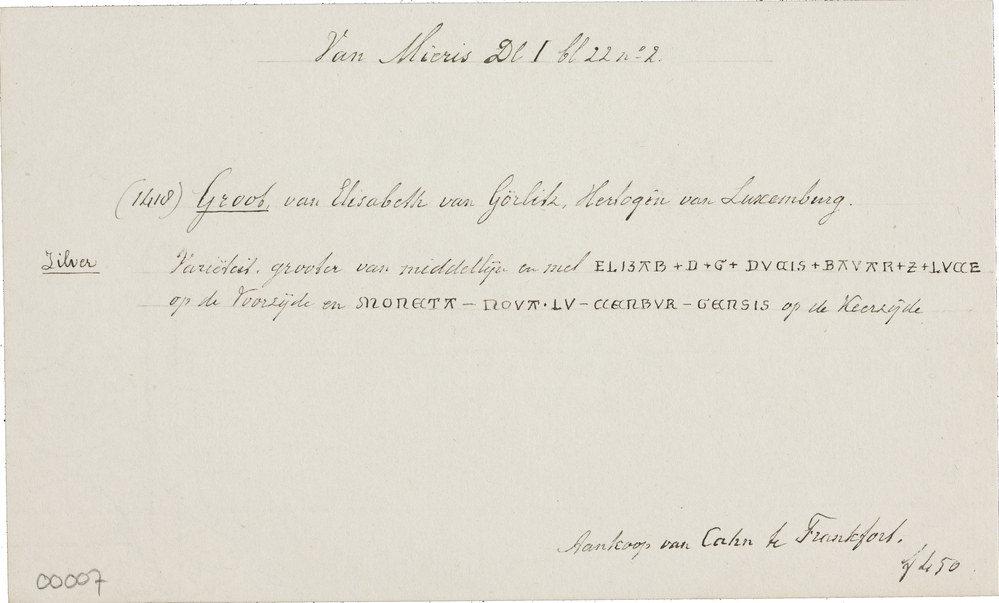 Van Mieris Dl I bl 22 nº 2.
(1418) Groot, van Elisabeth van Görlitz, Hertogin van Luxemburg.
Zilver
Variëteit. grooter van middellijn en met ELIZAB + D + G + DVCIS + BAVAR + Z + LVCE
op de Voorzijde en MONETA – NOVA · LV – CENBVR – GENSIS op de Keerzijde
Aankoop van Cahn te Frankfort.
f 4.50
00007